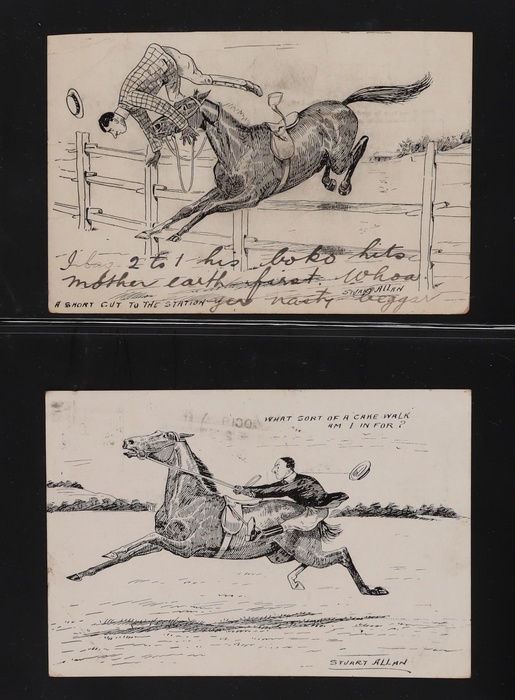 I lay 2 to 1 his boko hits
mother earth first. Whoa
yer nasty beggar
STUART ALLAN
A SHORT CUT TO THE STATION
WHAT SORT OF A CAKE WALK
AM I IN FOR?
STUART ALLAN